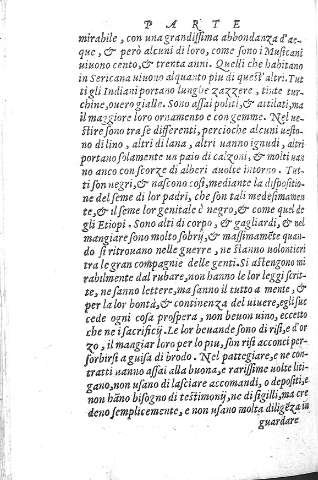 PARTE
mirabile, con una grandissima abbondanza d'ac-
que, & però alcuni di loro, come sono i Musicani
uiuono cento, & trenta anni. Quelli che habitano
in Sericana uiuono alquanto piu di quest'altri. Tut
ti gli Indiani portano lunghe zazzere, tinte tur-
chine, ouero gialle. Sono assai politi, & attilati, ma
il maggiore loro ornamento e con gemme. Nel ue-
stire sono tra se differenti, percioche alcuni uesto-
no di lino, altri di lana, altri uanno ignudi, altri
portano solamente un paio di calzoni, & molti uan
no anco con scorze di alberi auolte intorno. Tut-
ti son negri, & nascono cosi, mediante la dispositio-
ne del seme di lor padri, che son tali medesimamen-
te, & il seme lor genitale è negro, & come quel de
gli Etiopi. Sono alti di corpo, & gagliardi, & nel
mangiare sono molto sobrij, & massimamēte quan-
do si ritrouano nelle guerre, ne stanno uolontieri
tra le gran compagnie delle genti. Si astengono mi
rabilmente dal rubare, non hanno le lor leggi scrit-
te, ne sanno lettere, ma sanno il tutto a mente, &
per la lor bontà, & continenza del uiuere, egli suc
cede ogni cosa prospera, non beuon uino, eccetto
che ne i sacrificij. Le lor beuande sono di risi, e d'or
zo, il mangiar loro per lo piu, son risi acconci per-
sorbirsi a guisa di brodo. Nel patteggiare, e ne con-
tratti uanno assai alla buona, e rarissime uolte liti-
gano, non usano di lasciare accomandi, o depositi, e
non hāno bisogno di testimonij, ne di sigilli, ma cre
deno semplicemente, e non usano molta diligēza in
guardare